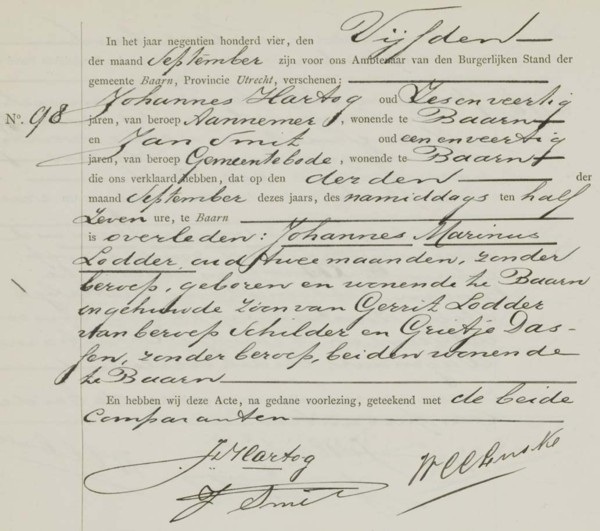 In het jaar negentien honderd vier, den Vijfden
der maand September zijn voor ons Ambtenaar van den Burgerlijken Stand der
gemeente Baarn, Provincie Utrecht, verschenen:
Johannes Hartog oud Zesenveertig
No. 98 jaren, van beroep Aannemer, wonende te Baarn
en Jan Smit oud eenenveertig
jaren, van beroep Gemeentebode, wonende te Baarn
die ons verklaard hebben, dat op den derden der
maand September dezes jaars, des namiddags ten half
Zeven ure, te Baarn
is overleden: Johannes Marinus
Lodder, oud twee maanden, zonder
beroep, geboren en wonende te Baarn
ongehuwde zoon van Gerrit Lodder
van beroep Schilder en Grietje Das-
sen, zonder beroep, beiden wonende
te Baarn
En hebben wij deze Acte, na gedane voorlezing, geteekend met de beide
Comparanten
J. Hartog
J Smit